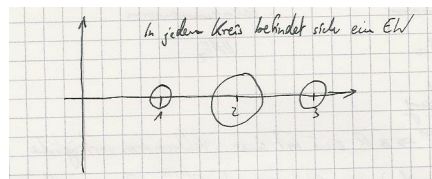 In jedem Kreis befindet sich ein EW
1 2 3